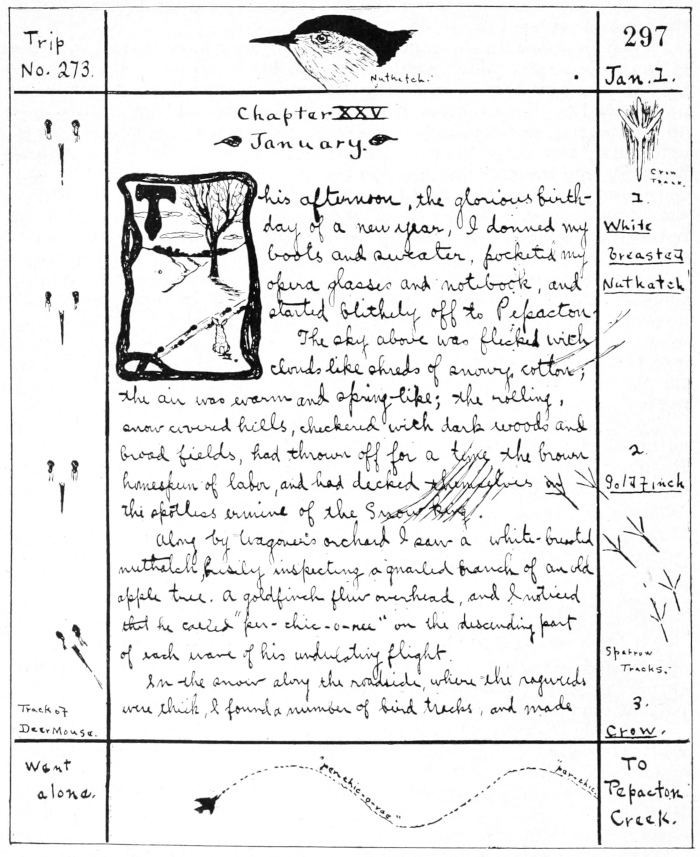 Trip
No. 273.
Nuthatch.
297
Jan. 1.
Chapter XXV
January.
This afternoon, the glorious birth-
day of a new year, I donned my
boots and sweater, pocketed my
opera glasses and notebook, and
started blithely off to Pepacton.
The sky above was flecked with
clouds like shreds of snowy cotton;
the air was warm and spring-like; the rolling,
snow covered hills, checkered with dark woods and
broad fields, had thrown off for a time the brown
homespun of labor, and had decked themselves in
the spotless ermine of the Snow King.
Along by Wagoner's orchard I saw a white-breasted
nuthatch busily inspecting a gnarled branch of an old
apple tree. A goldfinch flew overhead, and I noticed
that he called "per-chic-o-ree" on the descending part
of each wave of his undulating flight.
In the snow along the roadside, where the ragweeds
were thick, I found a number of bird tracks, and made
Crow
Track.
1.
White
Breasted
Nuthatch
2
Goldfinch
Sparrow
Tracks.
3.
Crow.
Track of
Deer Mouse.
Went
alone.
"per-chic-o-ree"
"per-chic-
To
Pepacton
Creek.